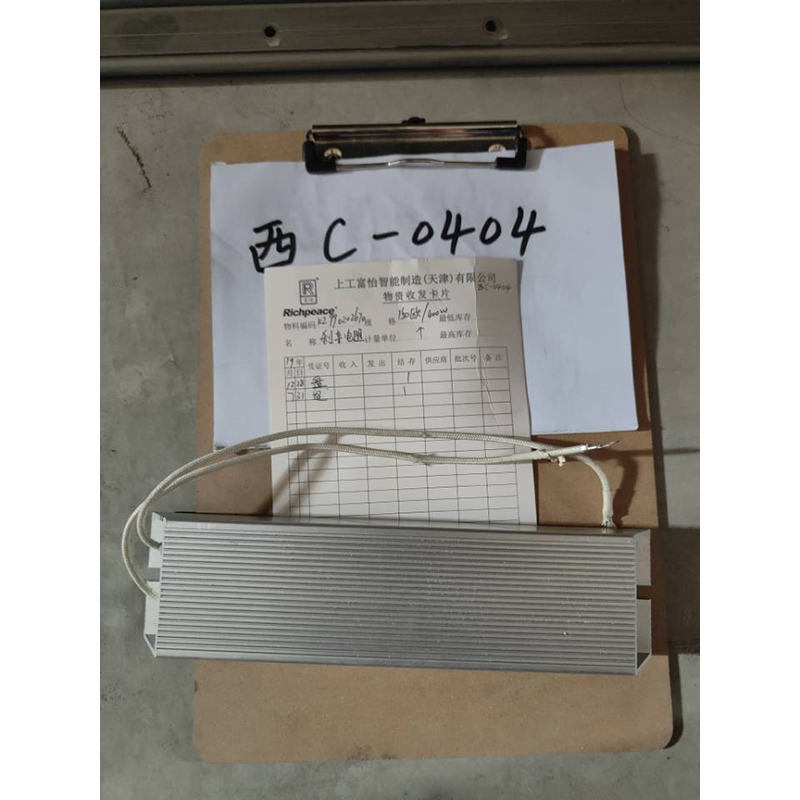 西 C-0404
上工富怡智能制造(天津)有限公司
西C-0404
物资收发卡片
Richpeace
物料编码 规格 最低库存
名称 刹车电阻 计量单位 个 最高库存
19年 凭证号 收入 发出 结存 供应商 批次号 备注
月 日
12 28 1
7 31 1